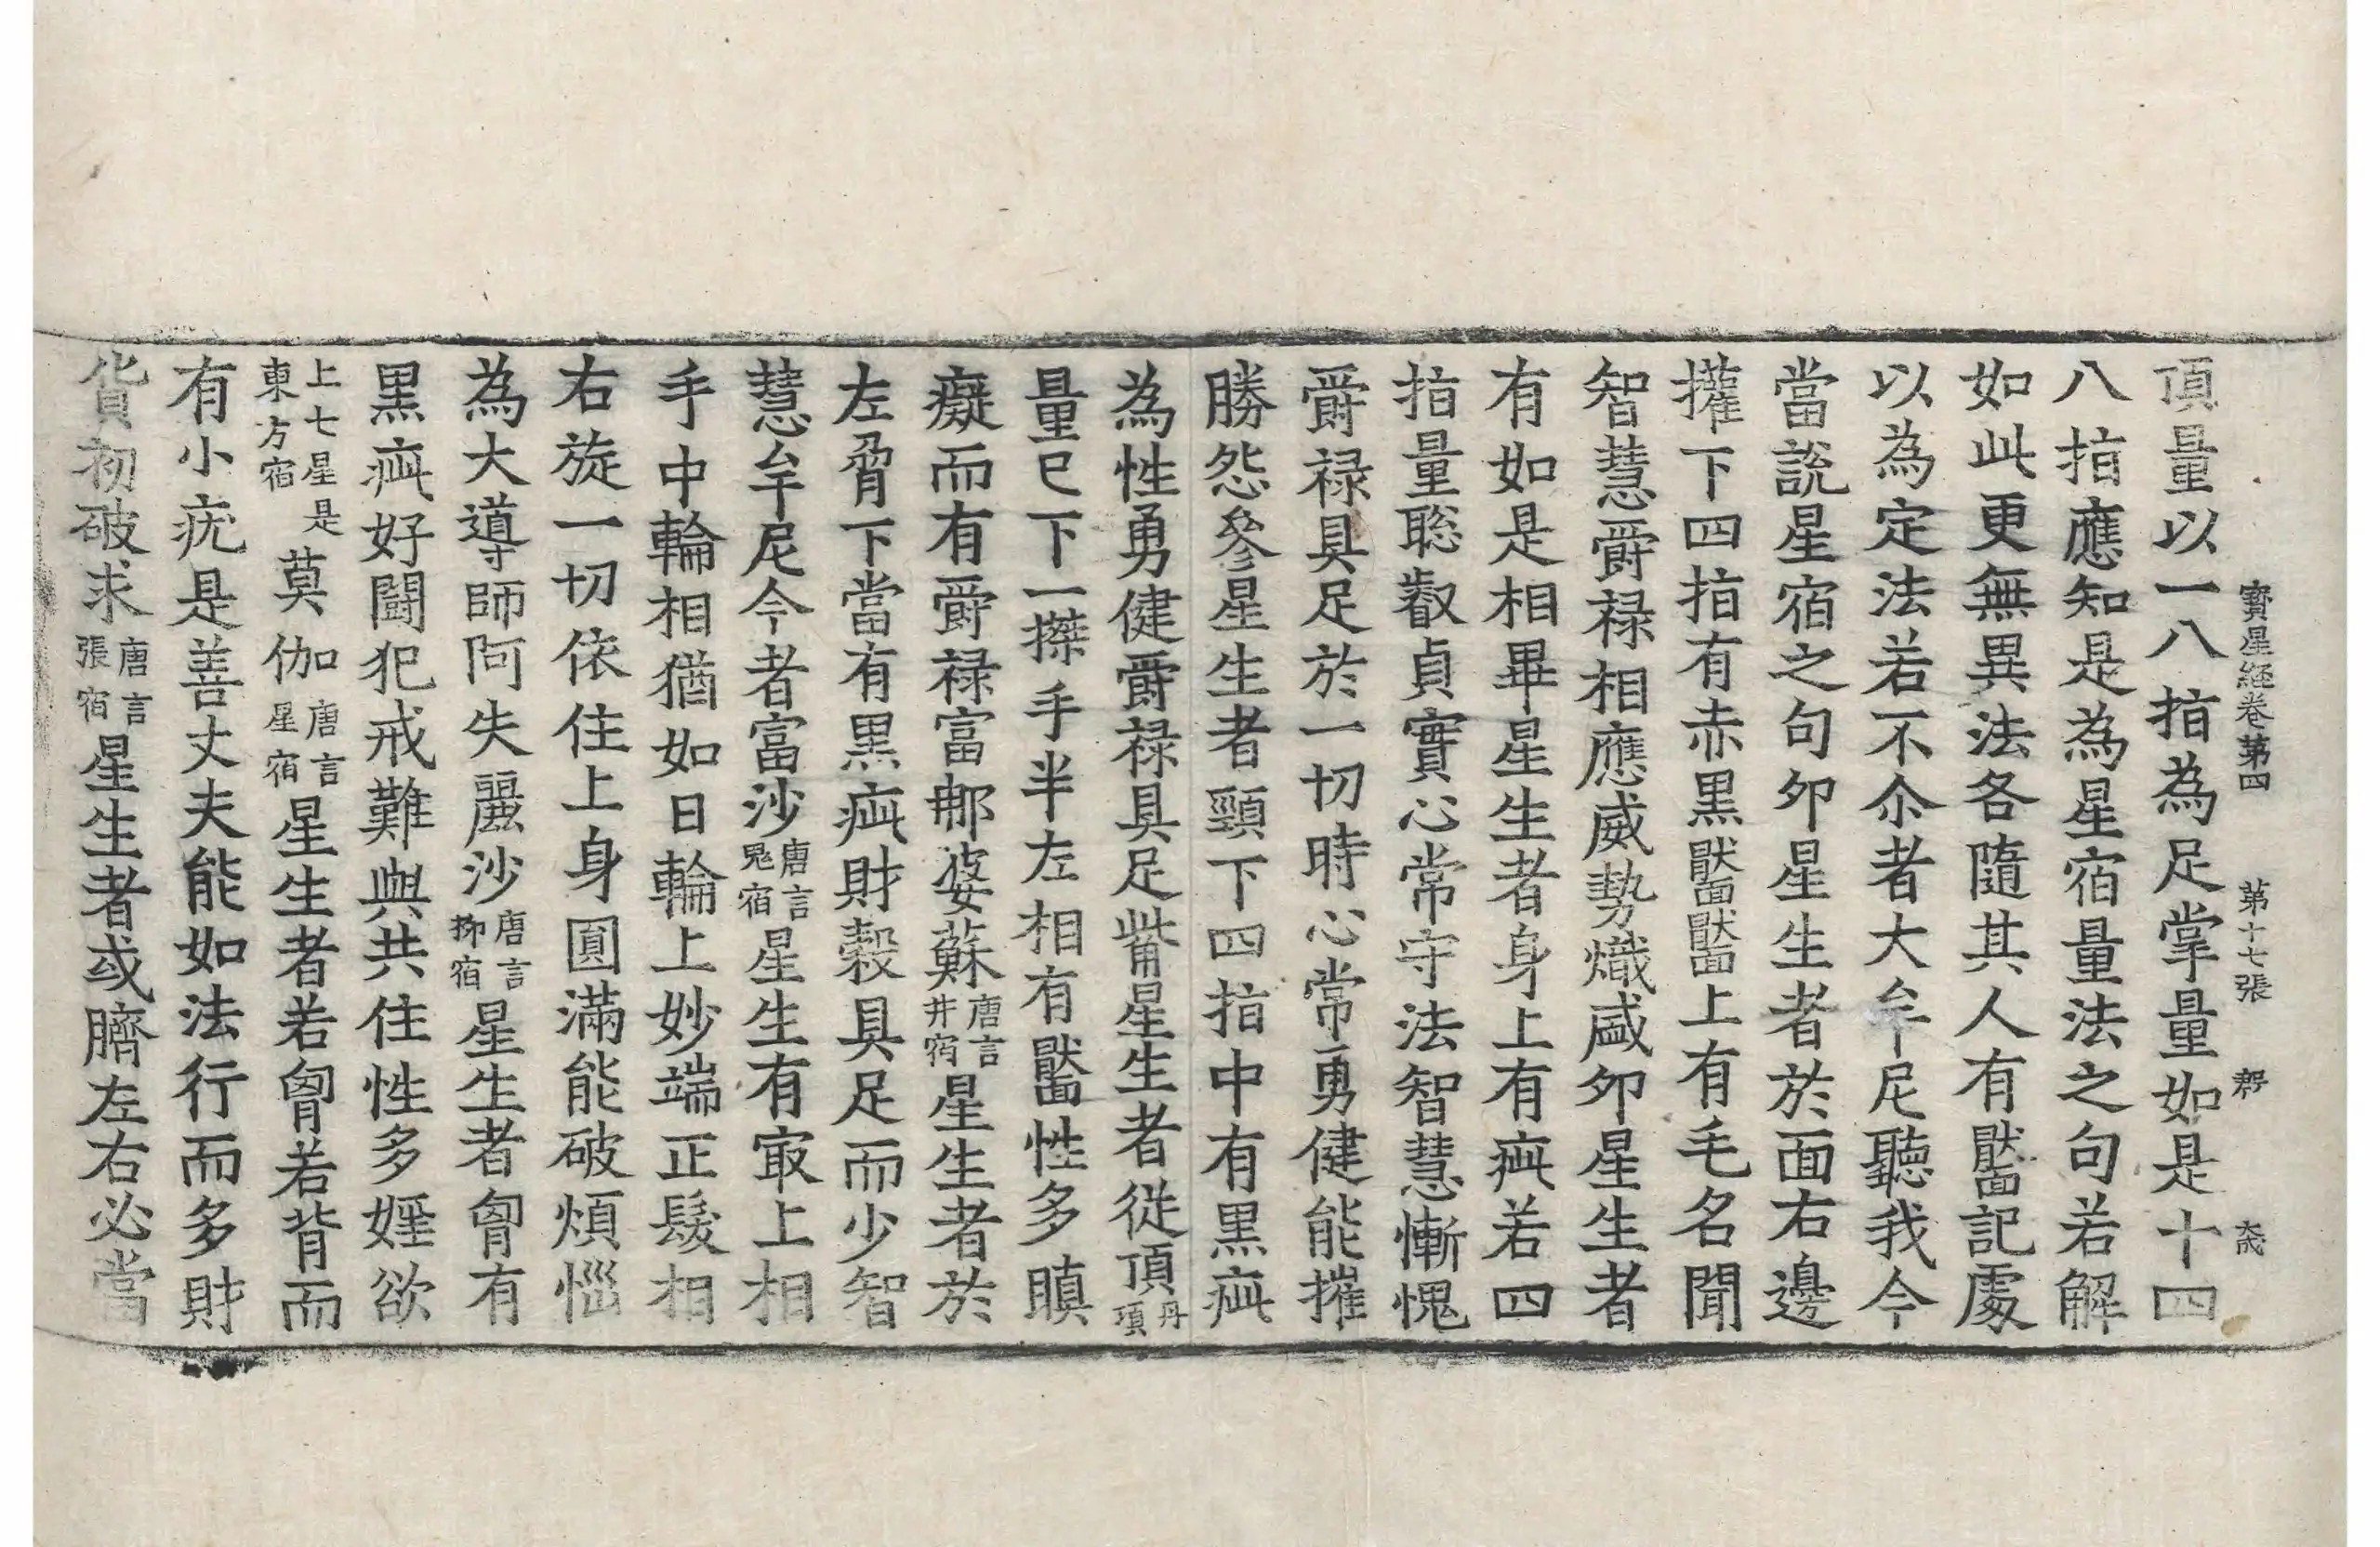 寶星經卷第四 第十七張
頂量以一八指為足掌量如是十四
八指應知是為星宿量法之句若解
如此更無異法各隨其人有黶記處
以為定法若不尒者大牟尼聽我今
當說星宿之句夘星生者於面右邊
㩲下四指有赤黑黶黶上有毛名聞
智慧爵禄相應威勢熾盛夘星生者
有如是相畢星生者身上有疵若四
指量聡叡貞實心常守法智慧慚愧
爵禄具足於一切時心常勇健能摧
勝怨叅星生者頸下四指中有黑疵
為性勇健爵禄具足觜星生者從頂丹項
量已下一搩手半左相有黶性多瞋
癡而有爵禄富那婆蘇唐言井宿星生者於
左脅下當有黑疵財糓具足而少智
慧牟尼今者富沙唐言鬼宿星生有㝡上相
手中輪相猶如日輪上妙端正髮相
右旋一切依住上身圓滿能破煩惱
為大導師阿失麗沙唐言柳宿星生者胷有
黑疵好鬪犯戒難與共住性多婬欲
上七星是東方宿莫伽唐言星宿星生者若胷若背而
有小疣是善丈夫能如法行而多財
貨初破求唐言張宿星生者或臍左右必當